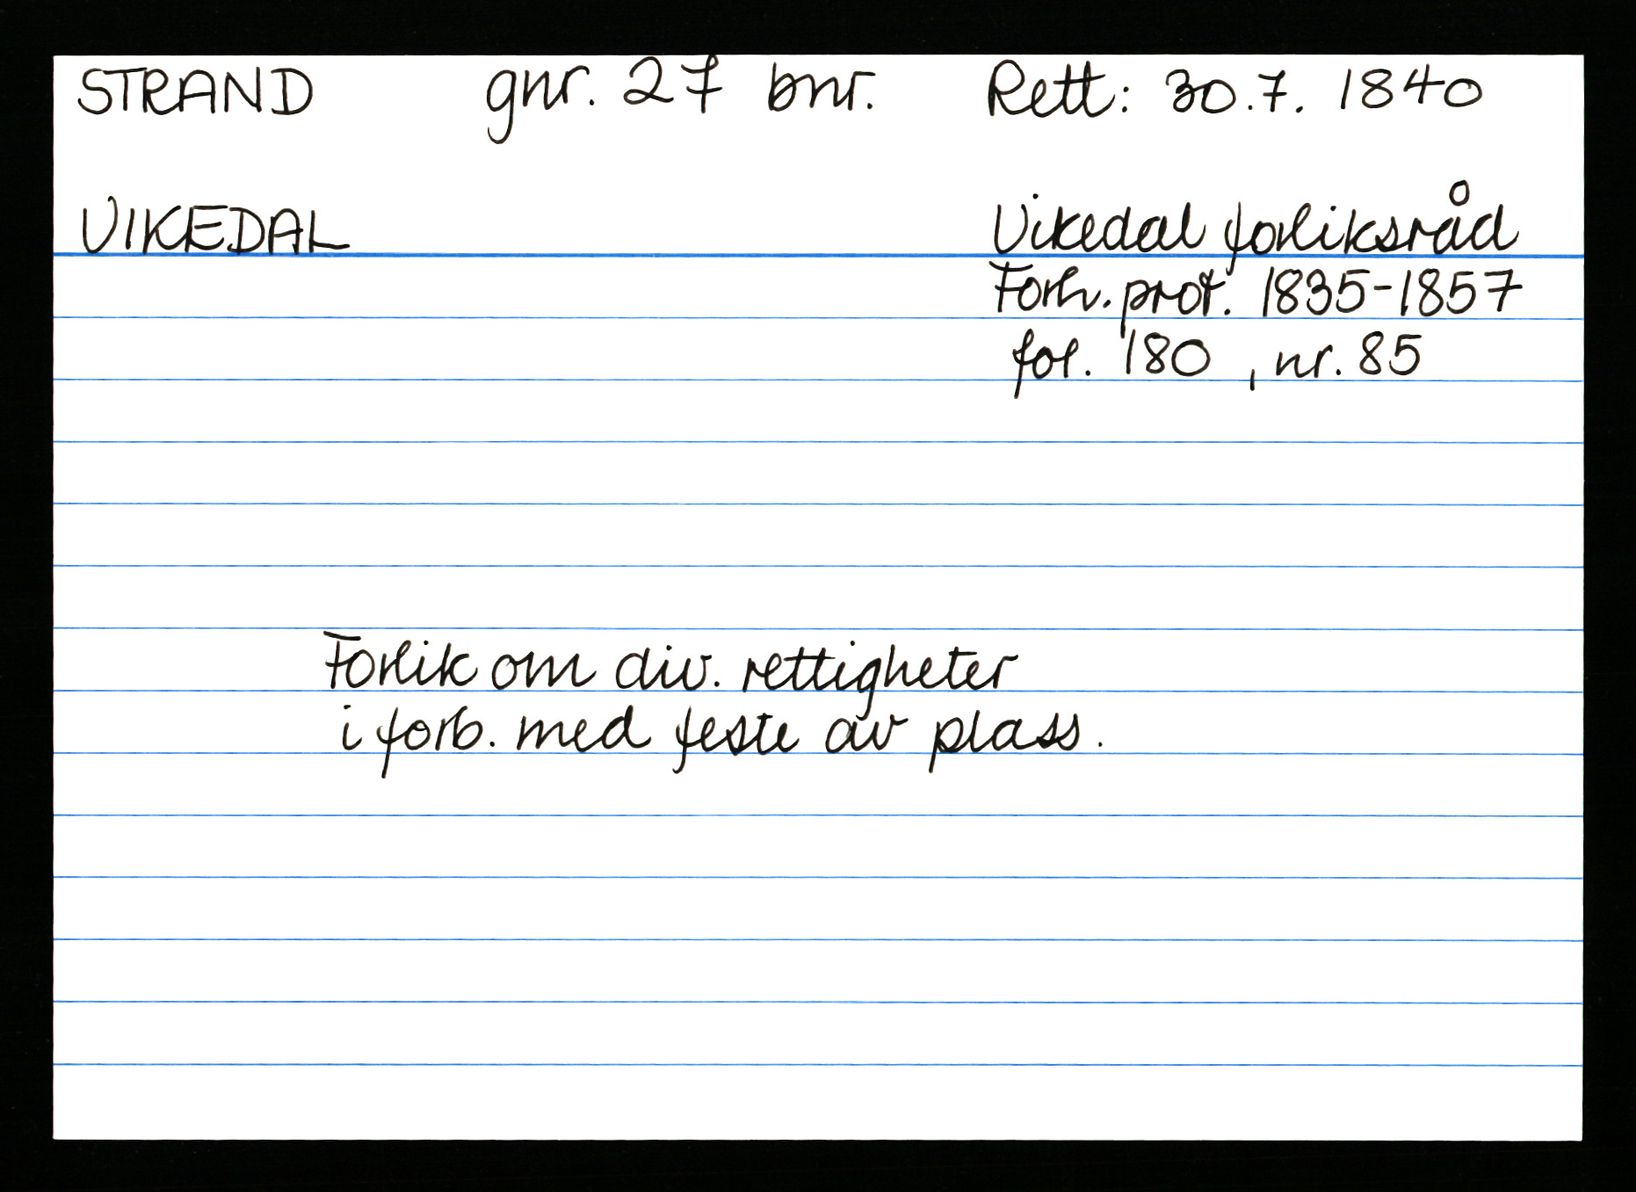 STRAND gnr. 27 bnr. Rett: 30.7. 1840
VIKEDAL Vikedal forliksråd
Forh. prot. 1835-1857
fol. 180 , nr. 85
Forlik om div. rettigheter
i forb. med feste av plass.